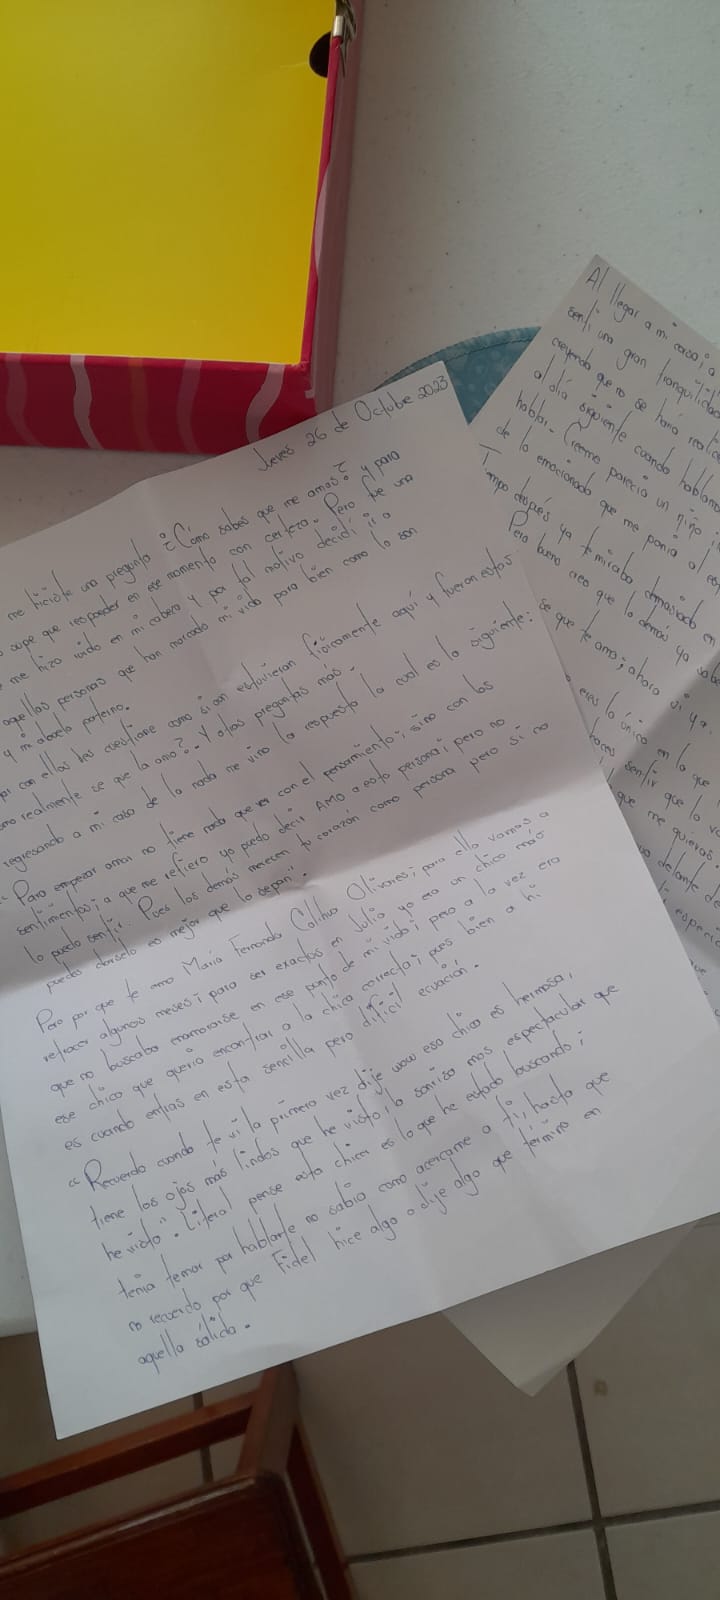 Jueves 26 de Octubre 2023
me hiciste una pregunta ¿Cómo sabes que me amas? y para
supe que responder en ese momento con certeza. Pero fue una
me hizo ruido en mi cabeza y por tal motivo decidí ir a
aquellas personas que han marcado mi vida para bien como lo son
y mi abuelo paterno.
con ellas les cuestione como si aun estuvieran físicamente aquí y fueron estas
como realmente se que la amo? Y otras preguntas más.
regresando a mi casa de la nada me vino la respuesta la cual es la siguiente:
"Para empezar amar no tiene nada que ver con el pensamiento; sino con los
sentimientos; a que me refiero yo puedo decir AMO a esta persona; pero no
lo puedo sentir. Pues los demás merecen tu corazón como persona pero si no
puedes darselo es mejor que lo sepan".
Pero por que te amo María Fernanda Olivares; para ello vamos a
retroceder algunos meses; para ser exactos en Julio yo era un chico más
que no buscaba enamorarse en ese punto de mi vida; pero a la vez era
ese chico que quería encontrar a la chica correcta; pues bien a hi
es cuando entras en esta sencilla pero difícil ecuación.
"Recuerdo cuando te vi la primera vez dije wow esa chica es hermosa,
tiene los ojos más lindos que he visto, la sonrisa mas espectacular que
he visto". Literal pense esta chica es lo que he estado buscando;
tenía temor por hablarte no sabía como acercame a ti, hasta que
no recuerdo por que Fidel hice algo o dije algo que término en
aquella salida.
Al llegar a mi casa; a
sentí una gran tranquilidad
creyendo que no se haría
al día siguiente cuando hablamos
hablar. Creeme parecía un niño
de lo emocionado que me ponia al
tiempo después ya te miraba demasiado en
Pero bueno creo que lo demás ya
se que te amo; ahora si ya.
eres lo único en la que
haces sentir que lo
que me quieras
delante de